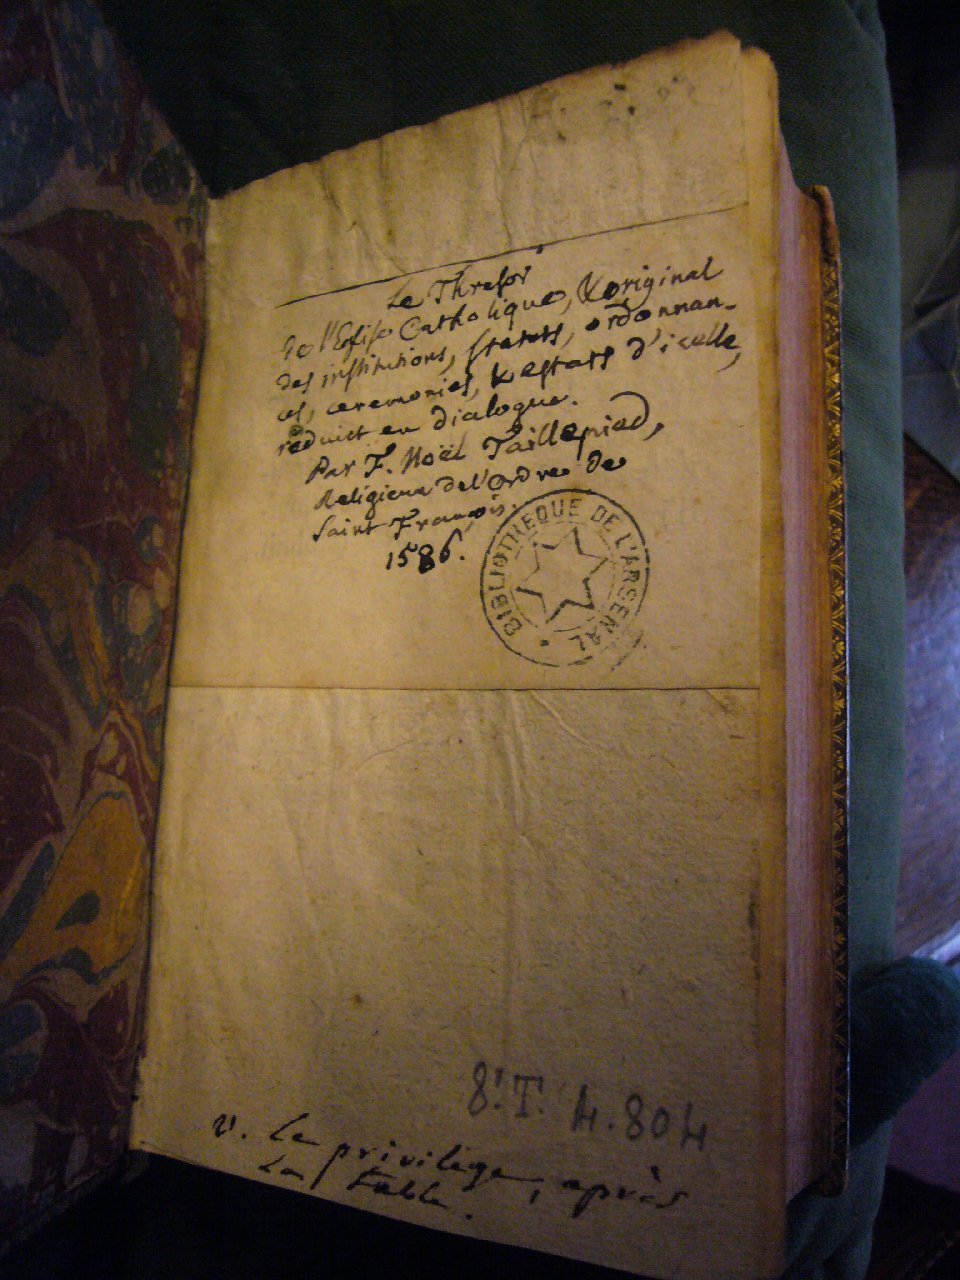 Le Thresor
de l'Eglise Catholique, & original
des institutions, statuts, ordonnan-
ces, ceremonies, & estats d'icelle,
reduict en dialogue.
Par F. Noël Taillepied,
Religieux de l'Ordre de
Saint François.
1586.
BIBLIOTHEQUE DE L'ARSENAL
8° T. 4.804
v. Le privilége, après
La Table.